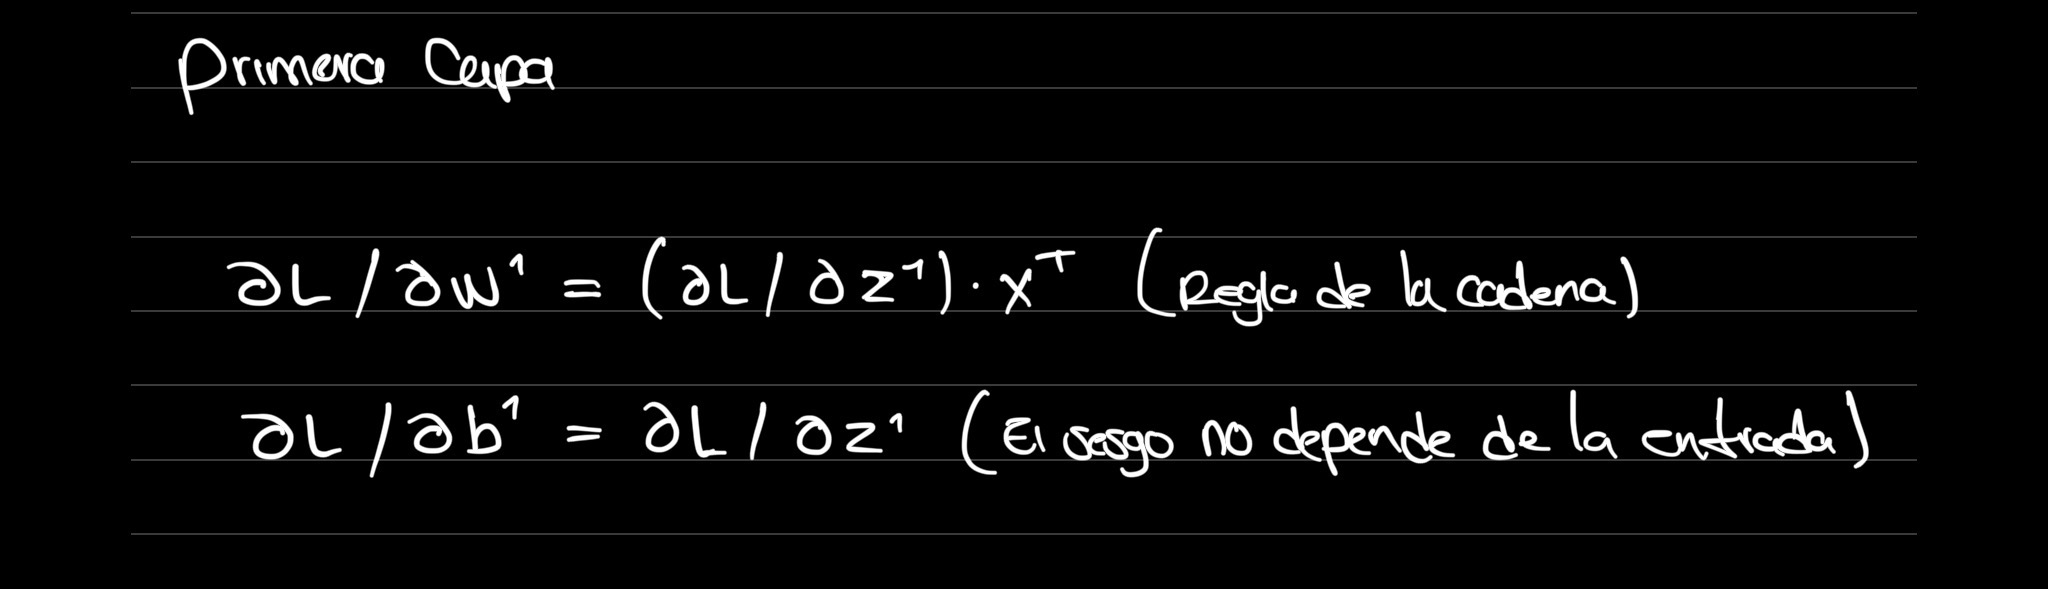 Primera Capa
∂L/∂w¹ = (∂L/∂z¹)·x^T (Regla de la cadena)
∂L/∂b¹ = ∂L/∂z¹ (El sesgo no depende de la entrada)